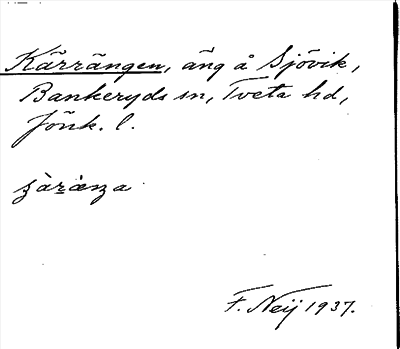 Kärrängen, äng å Sjövik,
Bankeryds sn, Tveta hd,
Jönk. l.
F. Neij 1937.